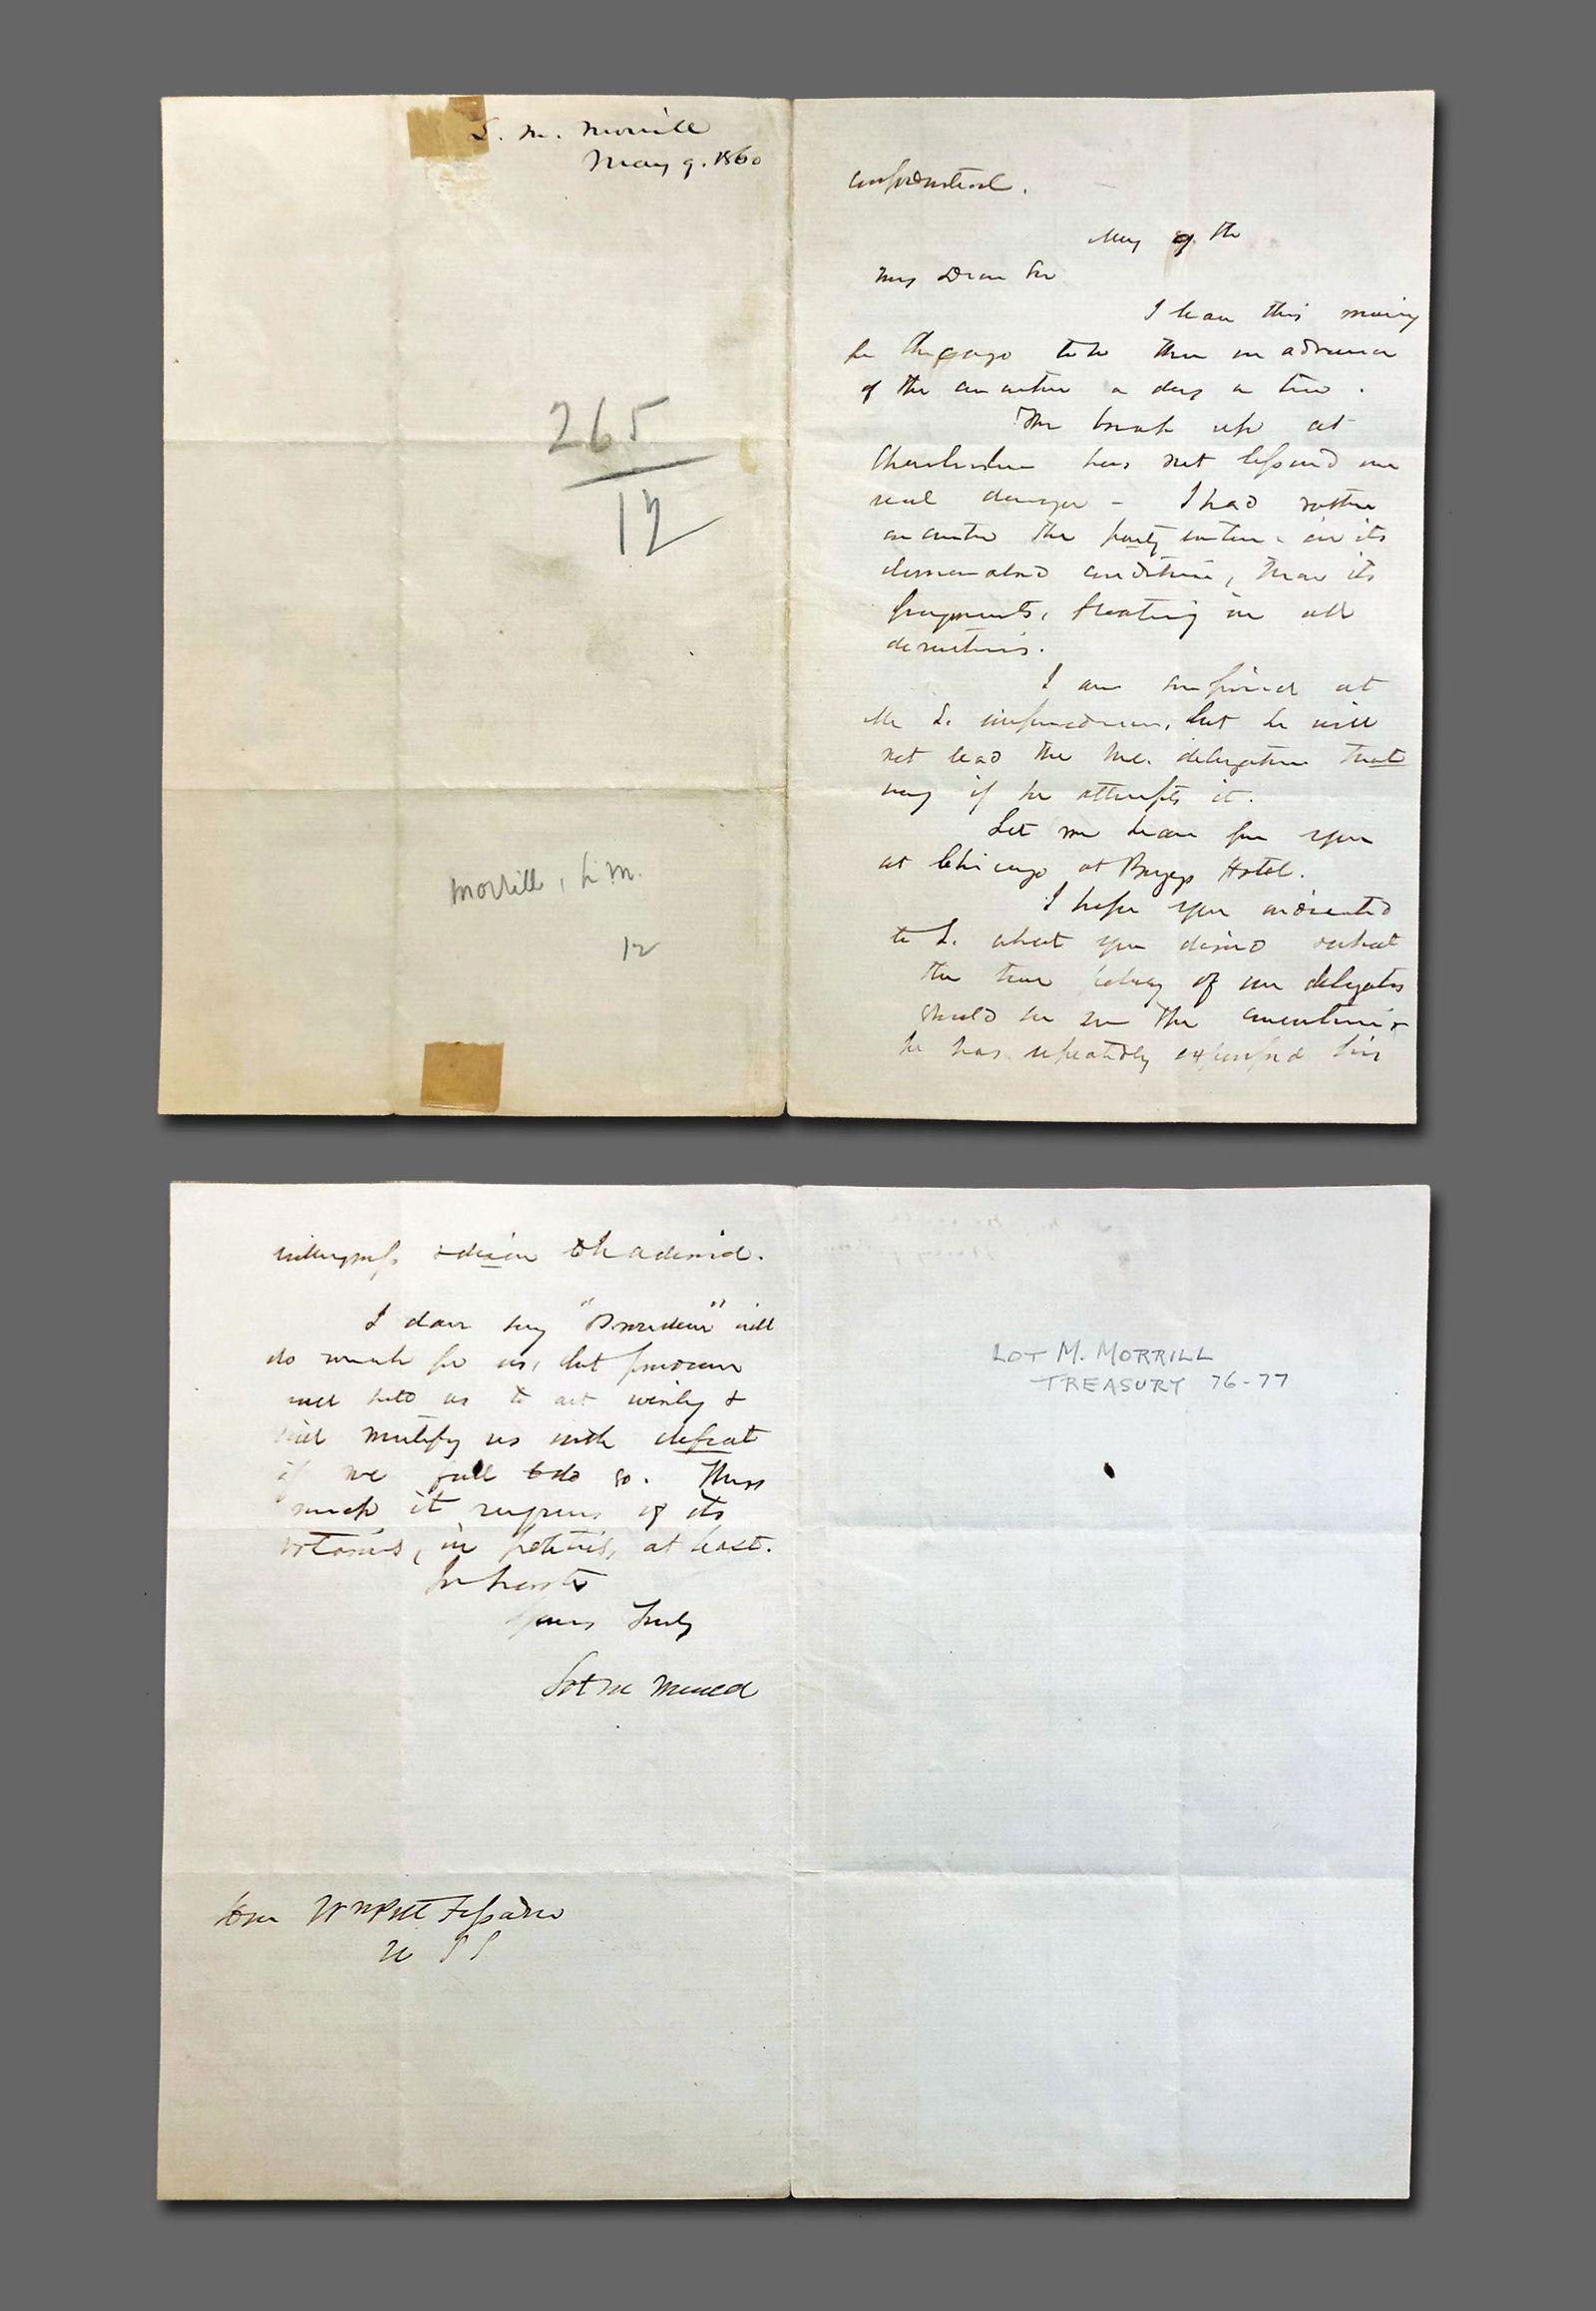 L. M. Morrill
May 9. 1860
265
12
Morrill, L M.
12
Confidential.
May 9 th
My Dear Sir
I leave this morning
for Chicago to be there in advance
of the convention a day or two.
The break up at
Charleston has not lessened our
real danger - I had rather
encounter the party entire in its
demoralized condition, than its
fragments, floating in all
directions.
I am surprised at
Mr L. but he will
not lead the Me. delegation that
way if he attempts it.
Let me hear from you
at Chicago at Briggs Hotel.
I hope you indicated
to L. what you desired & what
the true policy of our delegates
should be in the convention &
he has repeatedly expressed his
willingness & desire to be advised.
I dare say "Providence" will
do much for us, but
will hold us to act wisely &
will mortify us with defeat
if we fail to do so. Thus
much it requires of its
votaries, in politics, at least.
In haste
Yours Truly
Lot M Morrill
Hon Wm Pitt Fessenden
U S S
LOT M. MORRILL
TREASURY 76-77